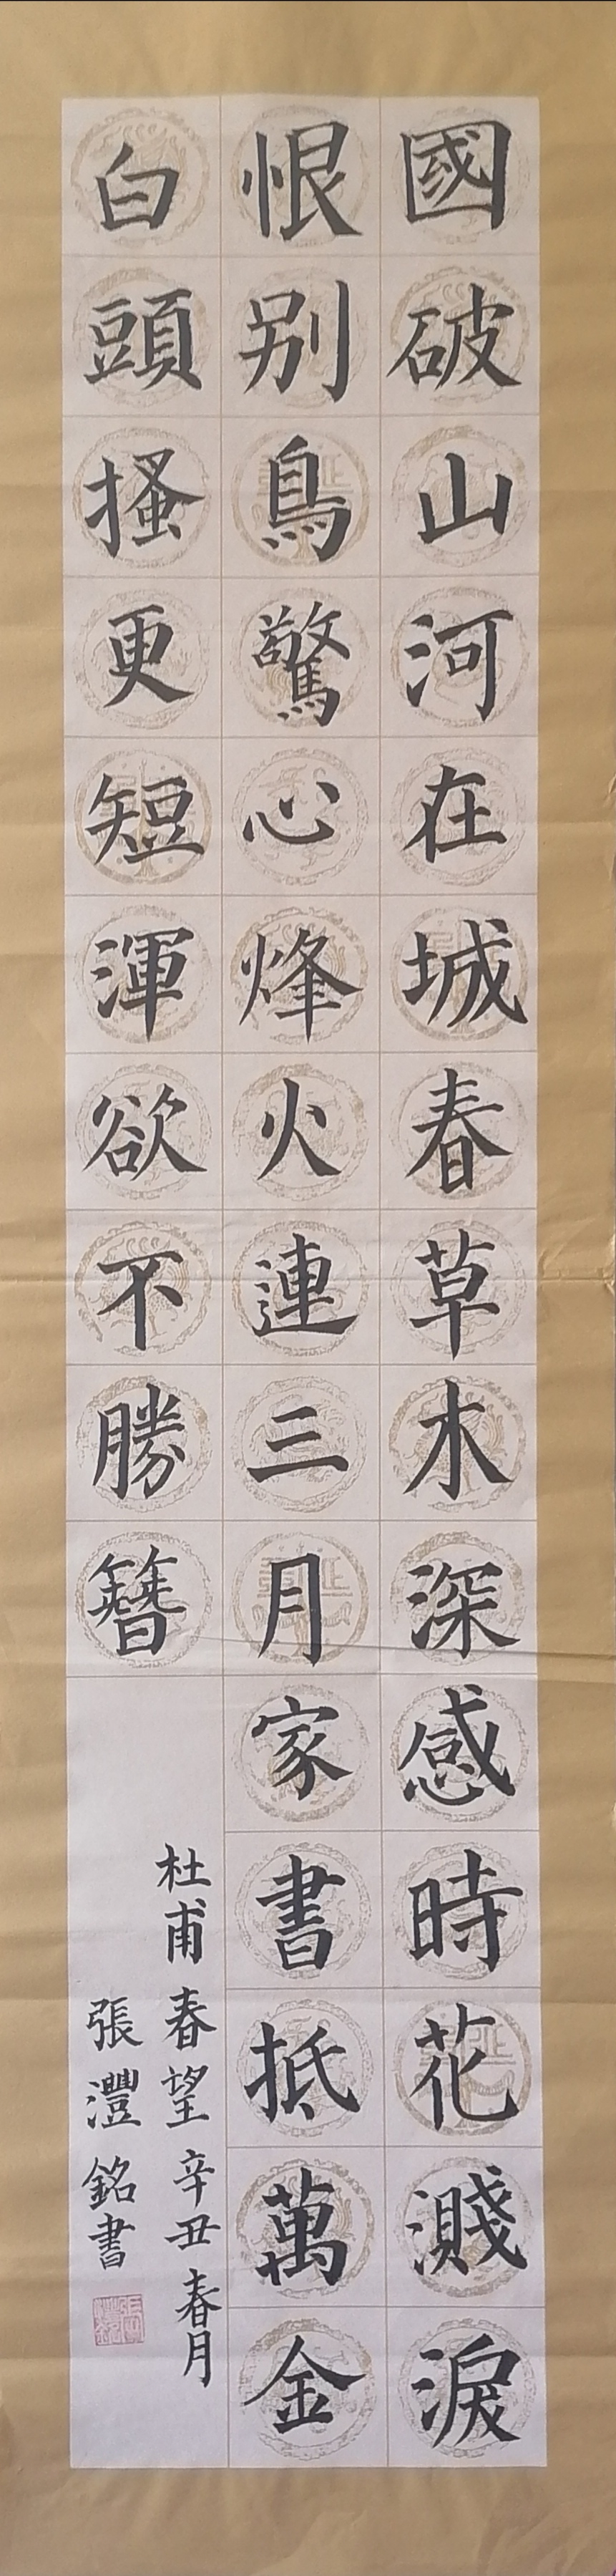 國破山河在城春草木深感時花濺淚
恨别鳥驚心烽火連三月家書抵萬金
白頭搔更短渾欲不勝簪
杜甫春望辛丑春月
張灃銘書